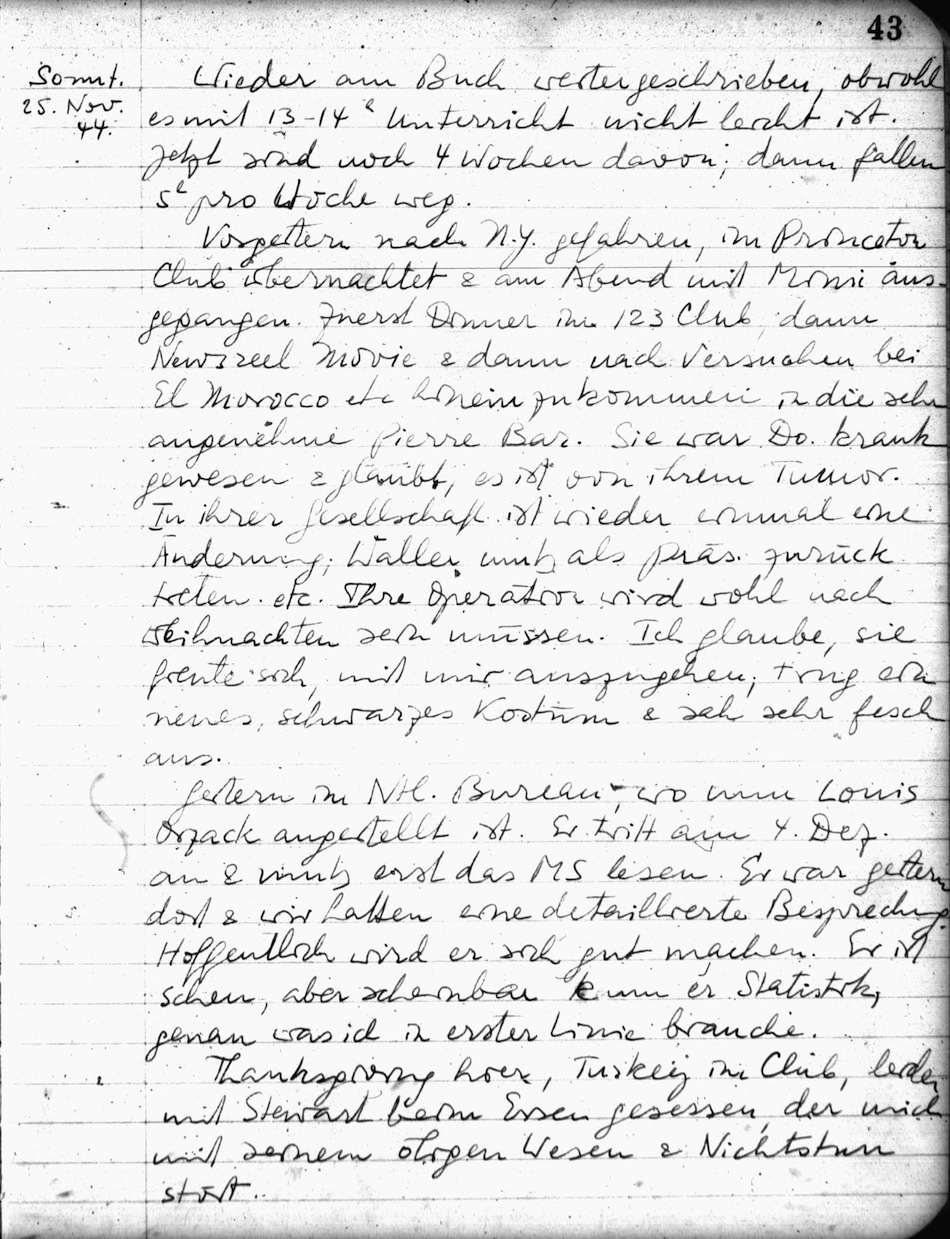 43
Sonnt.
25. Nov.
44.
Wieder am Buch weitergeschrieben, obwohl
es mit 13-14 h Unterricht nicht leicht ist.
Jetzt sind noch 4 Wochen davon; dann fallen
5 h pro Woche weg.
Vorgestern nach N.Y. gefahren, im Princeton
Club übernachtet & am Abend mit Mimi aus-
gegangen. Zuerst Dinner im 123 Club, dann
Newsreel Movie & dann nach Versuchen bei
El Morocco etc hineinzukommen in die sehr
angenehme Pierre Bar. Sie war Do. krank
gewesen & glaubt, es ist von ihrem Tumor.
In ihrer Gesellschaft ist wieder einmal eine
Änderung; Waller muß als Präs. zurück
treten. etc. Ihre Operation wird wohl nach
Weihnachten sein müssen. Ich glaube, sie
freute sich, mit mir auszugehen; trug ein
neues, schwarzes Kostüm & sah sehr fesch
aus.
Gestern im Ntl. Bureau, wo nun Louis
Orzack angestellt ist. Er tritt am 4. Dez.
an & muß erst das MS lesen. Er war gestern
dort & wir hatten eine detaillierte Besprechung.
Hoffentlich wird er sich gut machen. Er ist
scheu, aber scheinbar kann er Statistik,
genau was ich in erster Linie brauche.
Thanksgiving hier, Turkey im Club, leider
mit Stewart beim Essen gesessen, der mich
mit seinem öligen Wesen & Nichtstun
stört.